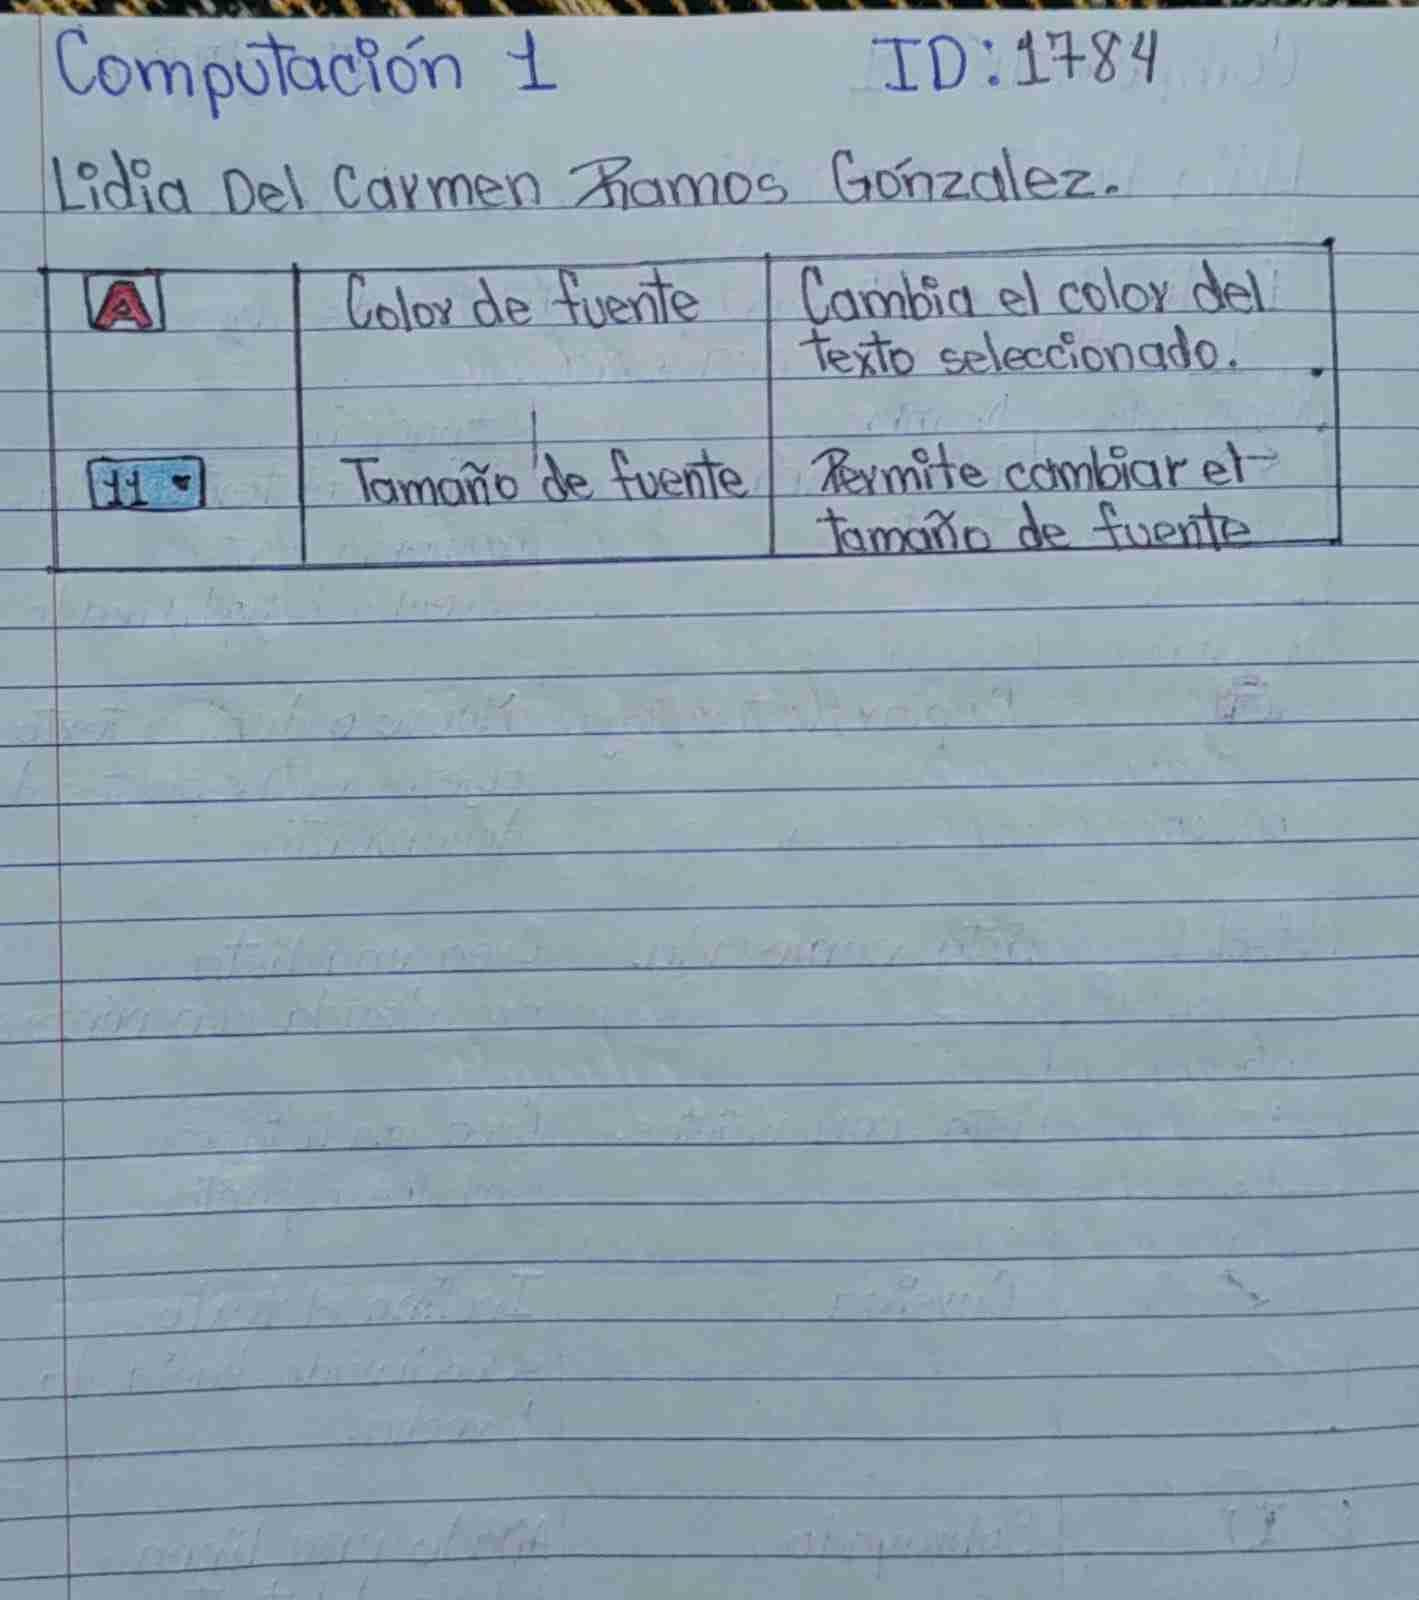 Computación 1 ID: 1784
Lidia Del Carmen Ramos Gónzalez.
A Color de fuente Cambia el color del
texto seleccionado.
11 Tamaño de fuente Permite cambiar el
tamaño de fuente